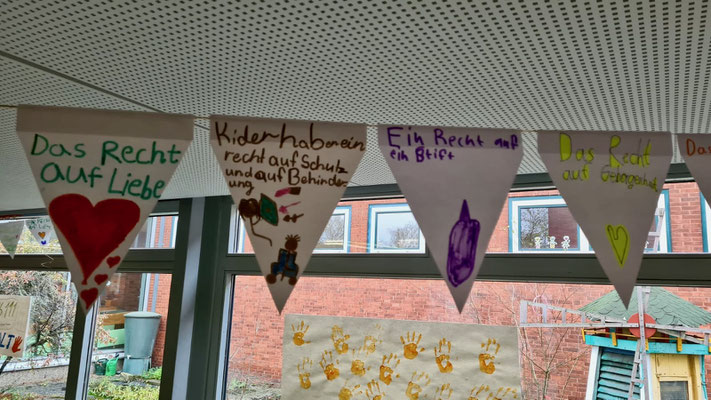 Das Recht
auf Liebe
Kiderhabenein
recht auf Schutz
und auf Behinder
ung
Ein Recht auf
ein Stift
Das Recht
auf
Das